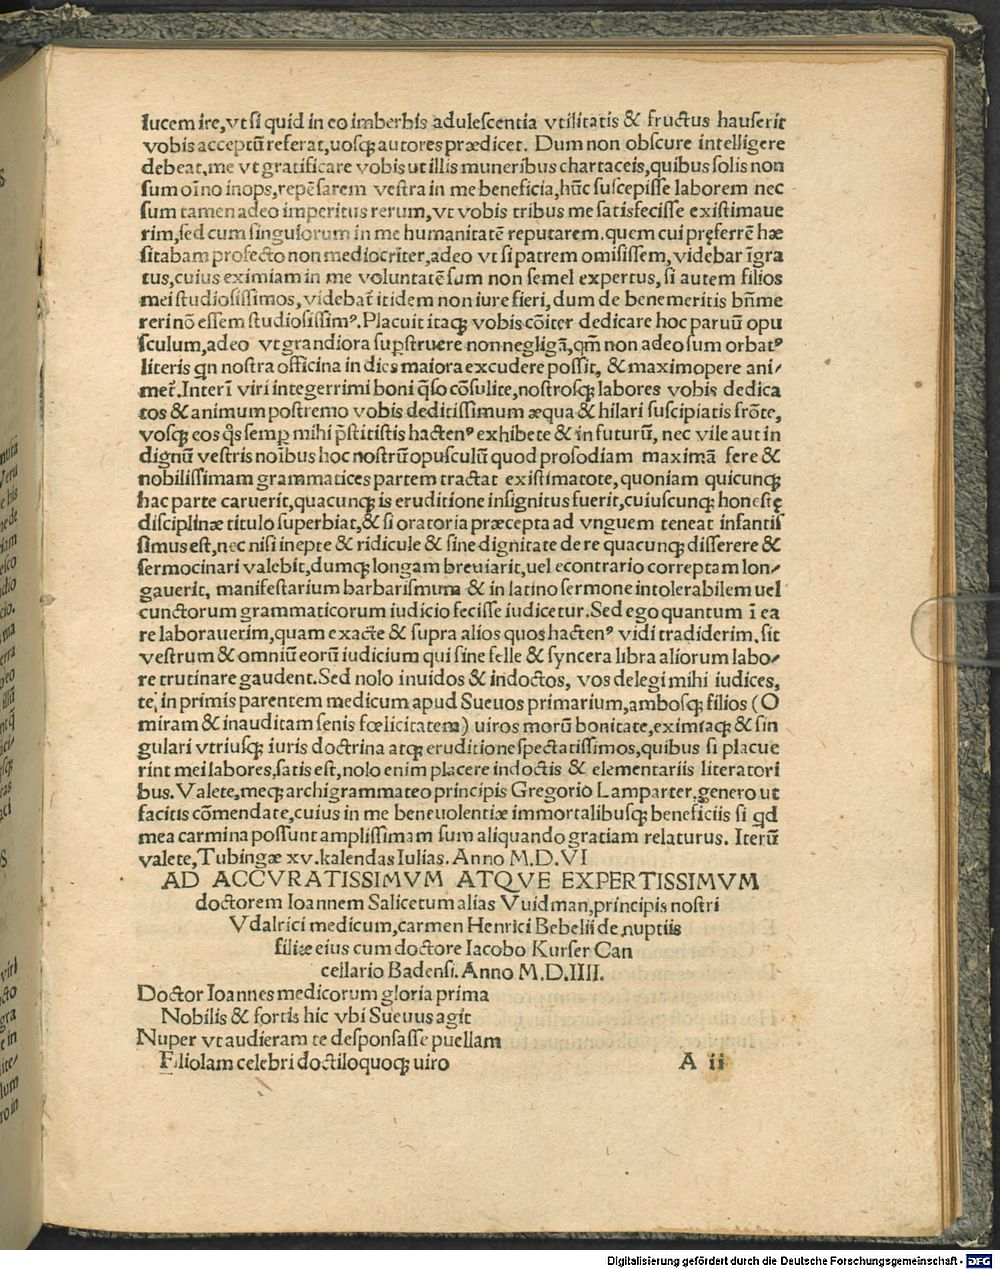 lucem ire,vt si quid in eo imberbis adulescentia vtilitatis & fructus hauserit
vobis acceptū referat,uosq; autores prædicet. Dum non obscure intelligere
debeat,me vt gratificare vobis ut illis muneribus chartaceis,quibus solis non
sum oīno inops,repēsarem vestra in me beneficia,hūc suscepisse laborem nec
sum tamen adeo imperitus rerum,vt vobis tribus me satisfecisse existimaue
rim,sed cum singulorum in me humanitatē reputarem.quem cui pręferrē hæ
sitabam profecto non mediocriter,adeo vt si patrem omisissem,videbar īgra
tus,cuius eximiam in me voluntatē sum non semel expertus, si autem filios
mei studiosissimos,videbat̄ itidem non iure fieri,dum de benemeritis bn̄me
reri nō essem studiosissimꝰ.Placuit itaq; vobis cōiter dedicare hoc paruū opu
sculum,adeo vt grandiora suꝑstruere non negligā,qm̄ non adeo sum orbatꝰ
literis qn nostra officina in dies maiora excudere possit, & maximopere ani⸗
met̄.Interī viri integerrimi boni q̄so cōsulite,nostrosq; labores vobis dedica
tos & animum postremo vobis deditissimum æqua & hilari suscipiatis frōte,
vosq; eos q̄s semꝑ mihi p̄stitistis hactenꝰ exhibete & in futurū, nec vile aut in
dignū vestris noībus hoc nostrū opusculū quod prosodiam maximā fere &
nobilissimam grammatices partem tractat existimatote, quoniam quicunq;
hac parte caruerit,quacunq; is eruditione insignitus fuerit,cuiuscunq; honestę
disciplinæ titulo superbiat,& si oratoria præcepta ad vnguem teneat infantis
simus est,nec nisi inepte & ridicule & sine dignitate de re quacunq; disserere &
sermocinari valebit,dumq; longam breuiarit,uel econtrario correptam lon⸗
gauerit, manifestarium barbarismum & in latino sermone intolerabilem uel
cunctorum grammaticorum iudicio fecisse iudicetur.Sed ego quantum ī ea
re laborauerim,quam exacte & supra alios quos hactenꝰ vidi tradiderim, sit
vestrum & omniū eorū iudicium qui sine felle & syncera libra aliorum labo⸗
re trutinare gaudent.Sed nolo inuidos & indoctos, vos delegi mihi iudices,
te, in primis parentem medicum apud Sueuos primarium,ambosq; filios (O
miram & inauditam senis fœlicitatem) uiros morū bonitate,eximiaq; & sin
gulari vtriusq; iuris doctrina atq; eruditione spectatissimos,quibus si placue
rint mei labores,satis est,nolo enim placere indoctis & elementariis literatori
bus.Valete,meq; archigrammateo principis Gregorio Lamparter,genero ut
facitis cōmendate,cuius in me beneuolentiæ immortalibusq; beneficiis si qd
mea carmina possunt amplissimam sum aliquando gratiam relaturus. Iterū
valete,Tubingæ xv.kalendas Iulias. Anno M.D.VI
AD ACCVRATISSIMVM ATQVE EXPERTISSIMVM
doctorem Ioannem Salicetum alias Vuidman,principis nostri
Vdalrici medicum,carmen Henrici Bebelii de nuptiis
filiæ eius cum doctore Iacobo Kurser Can
cellario Badensi. Anno M.D.IIII.
Doctor Ioannes medicorum gloria prima
Nobilis & fortis hic vbi Sueuus agit
Nuper vt audieram te desponsasse puellam
Filiolam celebri doctiloquoq; uiro
A ii
Digitalisierung gefördert durch die Deutsche Forschungsgemeinschaft - DFG